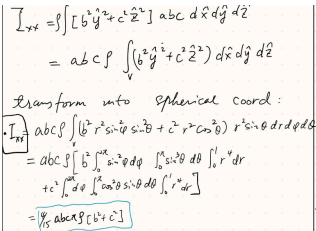 I_xx = ρ∫[b²ŷ² + c²ẑ²] abc dx̂ dŷ dẑ
= abc ρ ∫_V (b²ŷ² + c²ẑ²) dx̂ dŷ dẑ
transform into spherical coord:
• I_xx = abcρ ∫_V (b² r² sin²φ sin²θ + c² r² cos²θ) r² sinθ dr dφ dθ
= abc ρ [b² ∫₀^2π sin²φ dφ ∫₀^π sin³θ dθ ∫₀^1 r⁴ dr
+ c² ∫₀^2π dφ ∫₀^π cos²θ sinθ dθ ∫₀^1 r⁴ dr]
= 4/15 abcπρ [b² + c²]